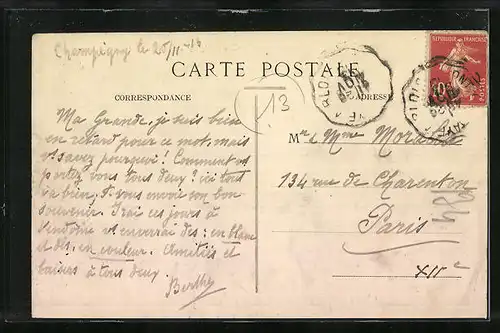 Champigny le 25/11
CARTE POSTALE
CORRESPONDANCE
ADRESSE
13
RÉPUBLIQUE FRANÇAISE
10
POSTES
Ma Grande, je suis bien
en retard pour ce mot, mais
savez pourquoi! Comment
portez vous tous deux? ici tout
va bien, vous envoie son bon
souvenir. J'irai ces jours à
Vendôme et enverrai des: en blanc
et des: en couleur. Amitiés et
baisers à tous deux.
Berthe
Mr & Mme
134 rue de Charenton
Paris
XIIe